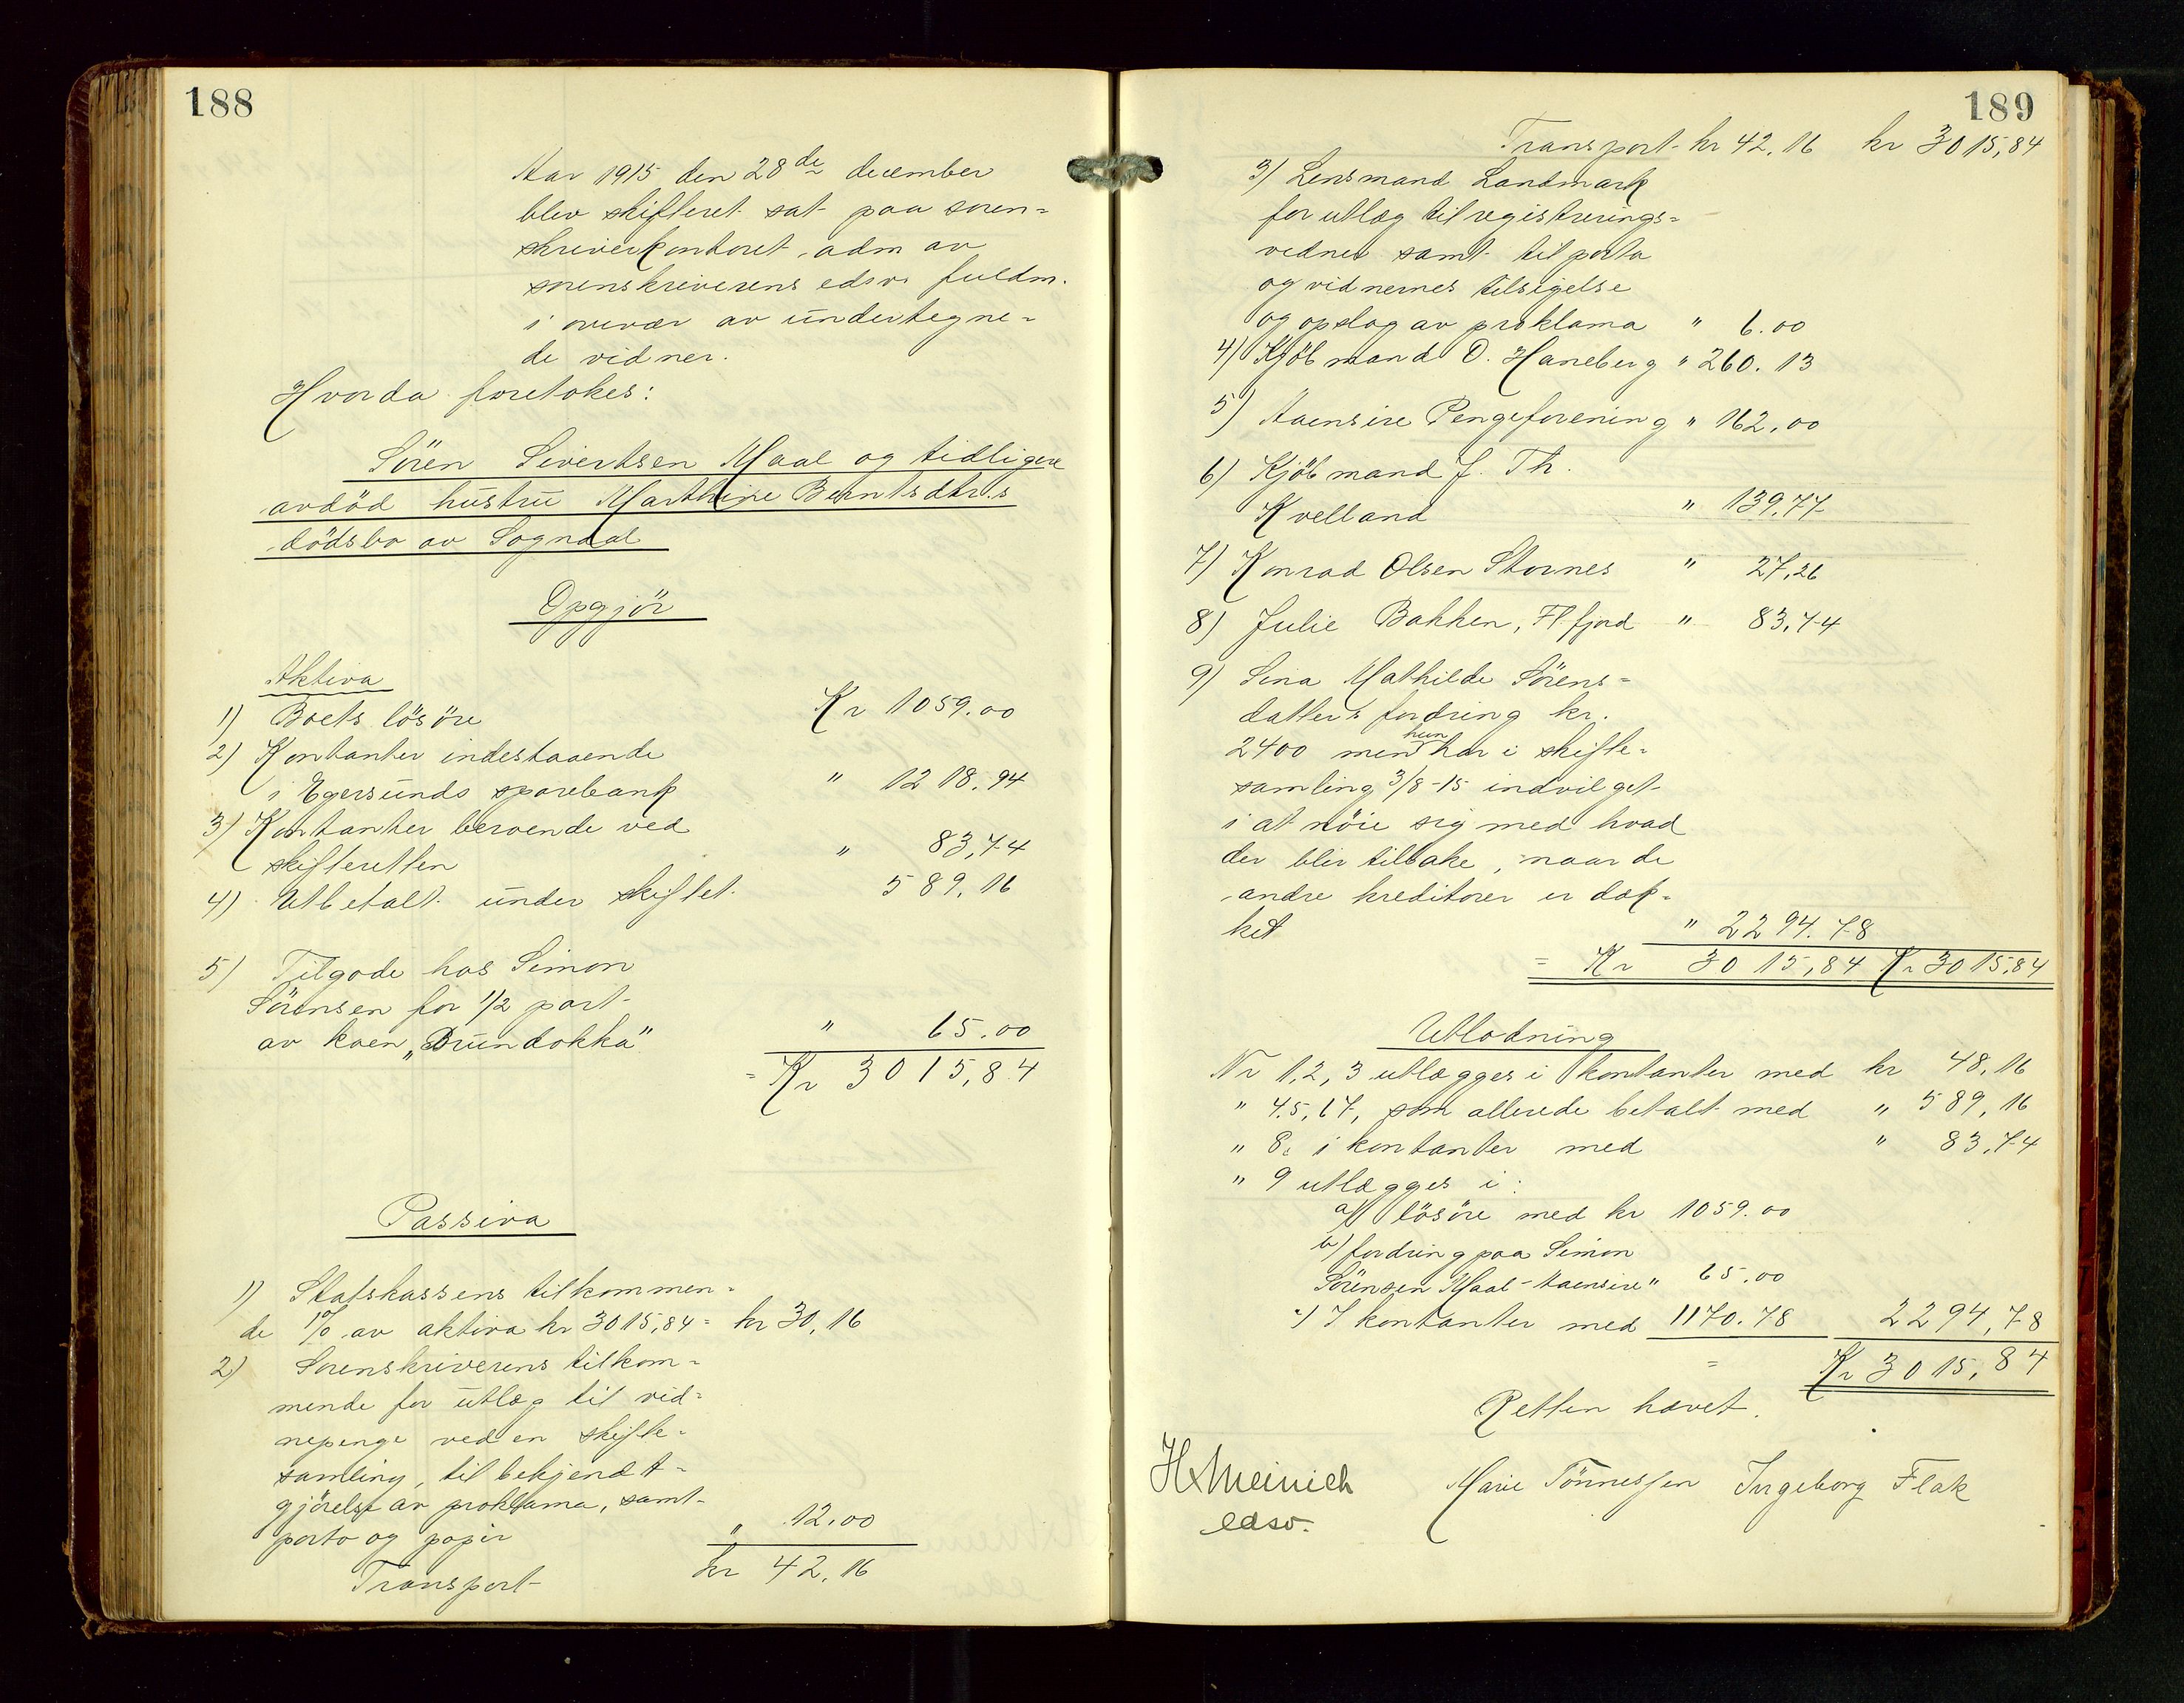 188
Aar 1915 den 28de december
blev skifteret sat paa soren=
skriverkontoret, adm av
sorenskriverens edsv. fuldm.
i overvær av undertegne=
de vidner.
Hvorda foretokes:
Sören Sivertsen Maal og tidligere
avdöd hustru Marthine Berntsdtr.s
dödsbo av Sogndal
Opgjör
Aktiva
1) Boets lösöre Kr 1059.00
2) Kontanter indestaaende
i Egersunds sparebank " 1218.94
3) Kontanter beroende ved
skifteretten " 83,74
4) Utbetalt under skiftet 589,16
5) Tilgode hos Simon
Sörensen for 1/2 part
av koen „Brundokka" " 65.00
= Kr 3015,84
Passiva
1) Statskassens tilkommen=
de 1% av aktiva kr 3015,84 = kr 30,16
2) Sorenskriverens tilkom=
mende for utlæg til vid=
nepenge ved en skifte=
samling, til bekjendt=
gjörelse av proklama, samt
porto og papir " 12.00
Transport kr 42,16
189
Transport kr 42,16 kr 3015,84
3) Lensmand Landmark
for utlæg til registrerings=
vidner samt til porto
og vidnernes tilsigelse
og opslag av proklama " 6.00
4) Kjöbmand O. Haneberg " 260.13
5) Aaensire Pengeforening " 162,00
6) Kjöbmand J. Th.
Kvelland " 139,77
7) Konrad Olsen Stornes " 27,26
8) Julie Bakken, Fl.fjord " 83,74
9) Sina Mathilde Sörens=
datters fordring kr.
2400 men hun har i skifte=
samling 3/8-15 indvilget
i at nöie sig med hvad
der blir tilbake, naar de
andre kreditorer er dæk=
ket " 2294.78
= Kr 3015,84 Kr 3015,84
Utlodning
Nr 1,2,3 utlægges i kontanter med kr 48,16
" 4.5.67, som allerede betalt med " 589,16
" 8, i kontanter med " 83,74
" 9 utlægges i:
a) lösöre med kr 1059.00
b) fordring paa Simon
Sörensen Maal-Aaensire" 65.00
c) I kontanter med 1170.78 2294,78
= Kr 3015,84
Retten hævet.
H Meinich Marie Tönnessen Ingeborg Flak
edsv.